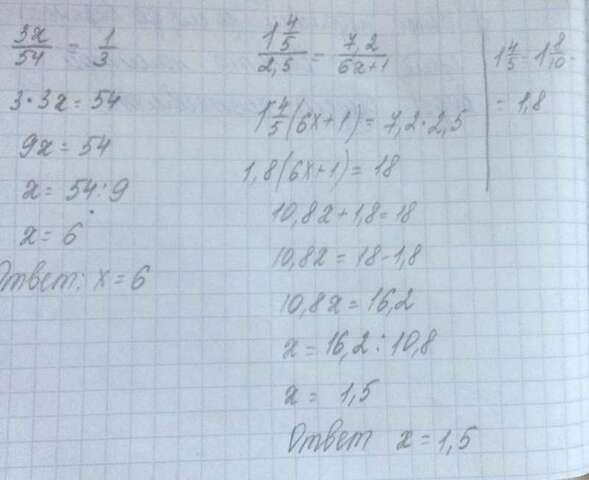 3x/54 = 1/3
3·3x = 54
9x = 54
x = 54:9
x = 6
Ответ: x = 6
1 4/5 / 2,5 = 7,2 / 6x+1
1 4/5 (6x+1) = 7,2·2,5
1,8(6x+1) = 18
10,8x+1,8=18
10,8x = 18-1,8
10,8x = 16,2
x = 16,2 : 10,8
x = 1,5
Ответ x = 1,5
1 4/5 = 1 8/10 =
= 1,8